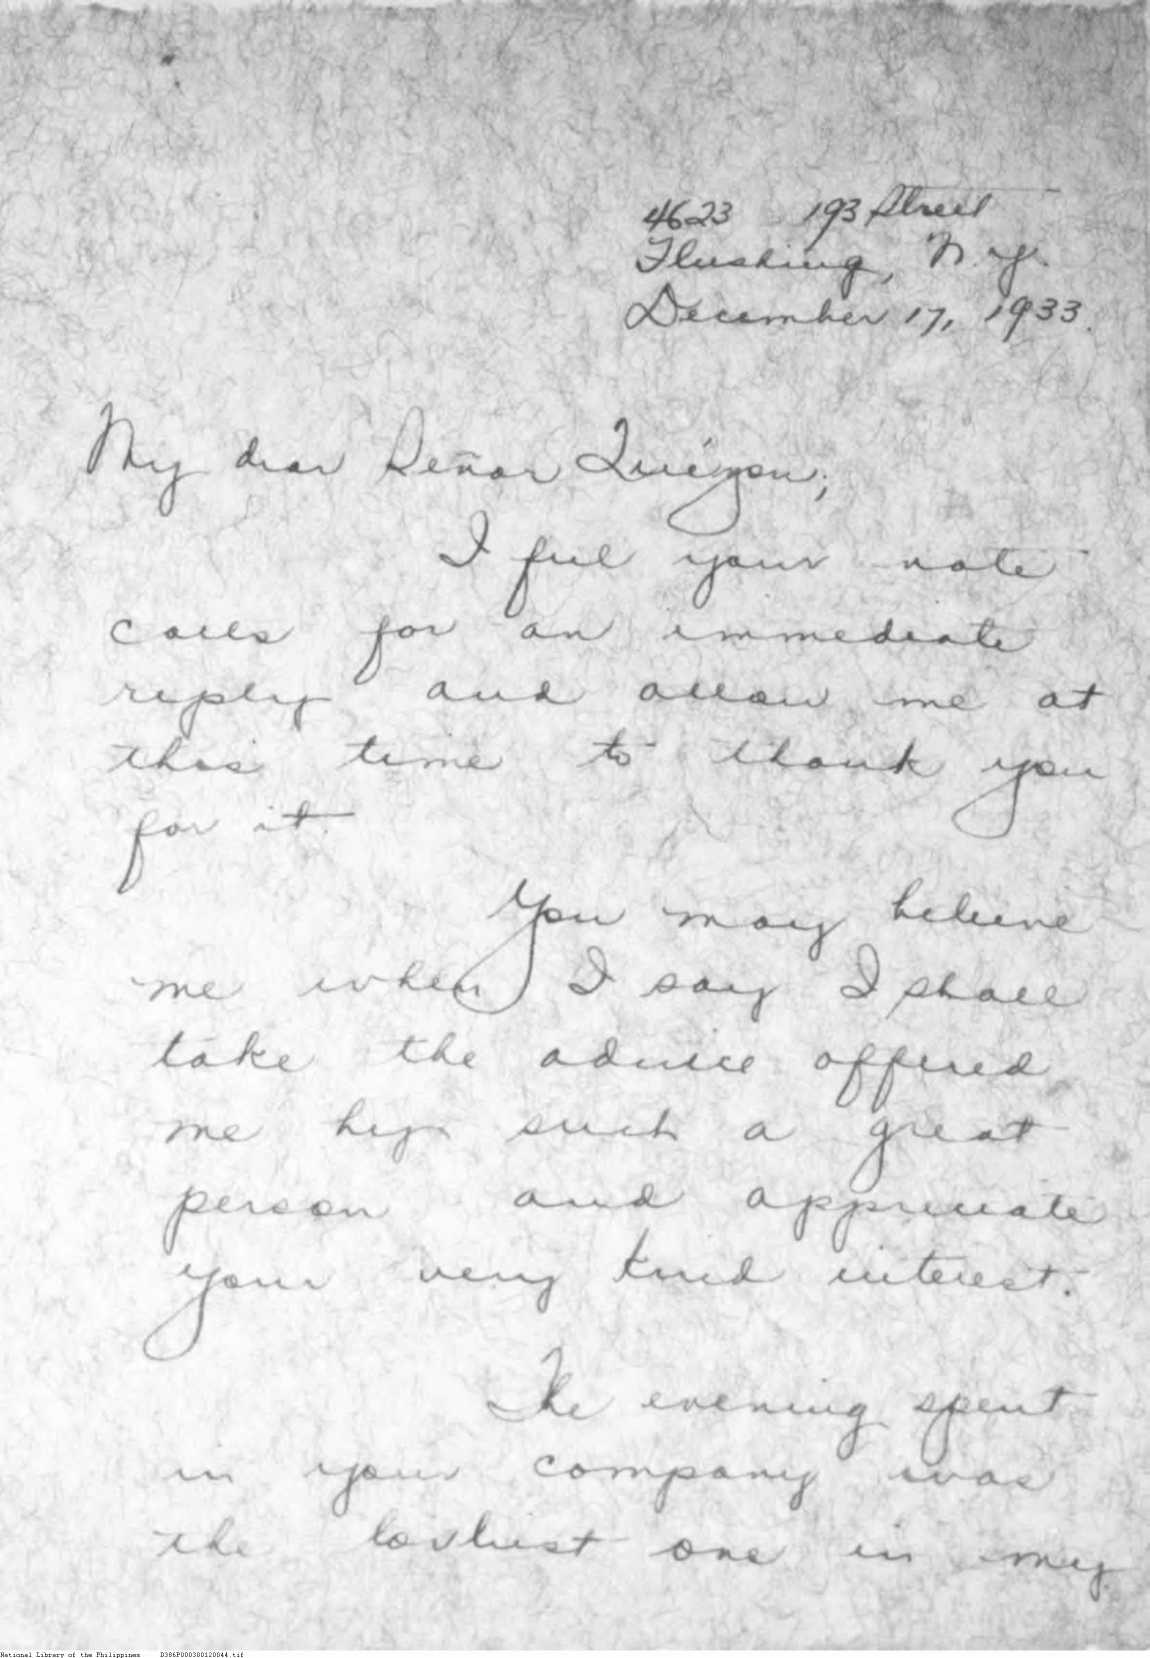 4623 193 Street
Flushing, N.Y.
December 17, 1933.
My dear Señor Quézon;
I feel your note
calls for an immediate
reply and allow me at
this time to thank you
for it.
You may believe
me when I say I shall
take the advice offered
me by such a great
person and appreciate
your very kind interest.
The evening spent
in your company was
the lovliest one in my
National Library of the Philippines D386P000300120044.tif